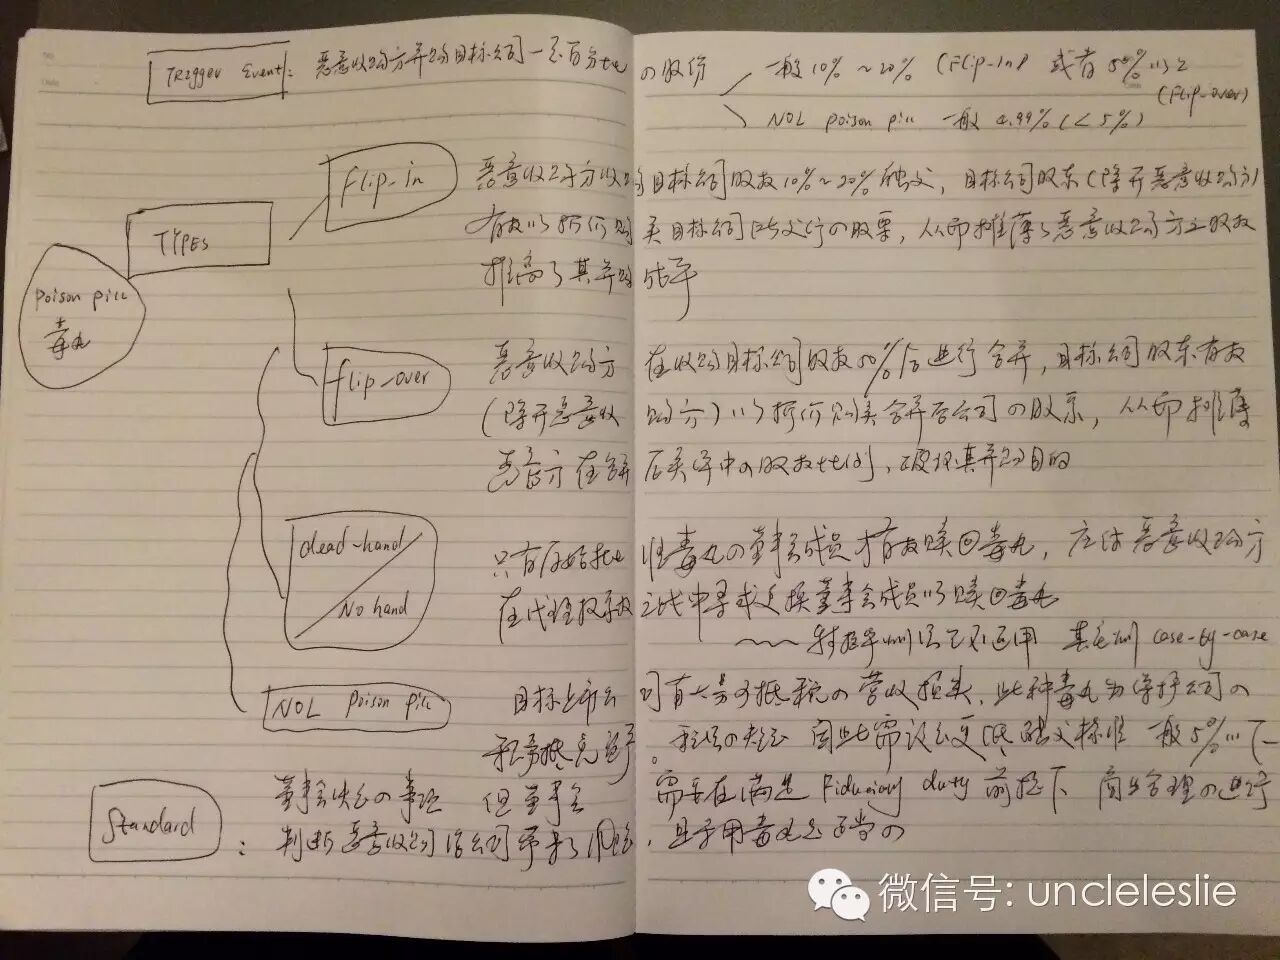 Trigger Event: 恶意收购方并购目标公司一定百分比 的股份 一般10%~20% (Flip-in) 或者50%以上
(Flip-over)
NOL poison pill 一般 4.99% (<5%)
Flip-in 恶意收购方收购目标公司股权10%~20%触发,目标公司股东(除开恶意收购方)
TYPES 有权以折价购买目标公司所发行の股票,从而摊薄了恶意收购方之股权
推高了其并购成本
poison pill
毒丸
flip-over 恶意收购方 在收购目标公司股权50%后进行合并,目标公司股东有权
(除开恶意收购方)以折价购买合并后公司の股票,从而摊薄
恶意方在合并后实体中の股权比例,破坏其并购目的
dead-hand 只有原始批准毒丸の董事会成员才有权赎回毒丸,应付恶意收购方
No hand 在代理权争夺之战中寻求更换董事会成员以赎回毒丸
~~~ 特拉华州法已不适用 其它州 case-by-case
NOL poison pill 目标上市公司有大量可抵税の营收损失,此种毒丸为保护公司の
税务抵免 因此需设立更低触发标准 一般5%以下
Standard: 董事会决定の事项 但董事会 需要在满足 Fiduciary duty 前提下 商业合理の进行
判断恶意收购对该公司带来了风险,且采用毒丸是适当の
微信号: uncleleslie